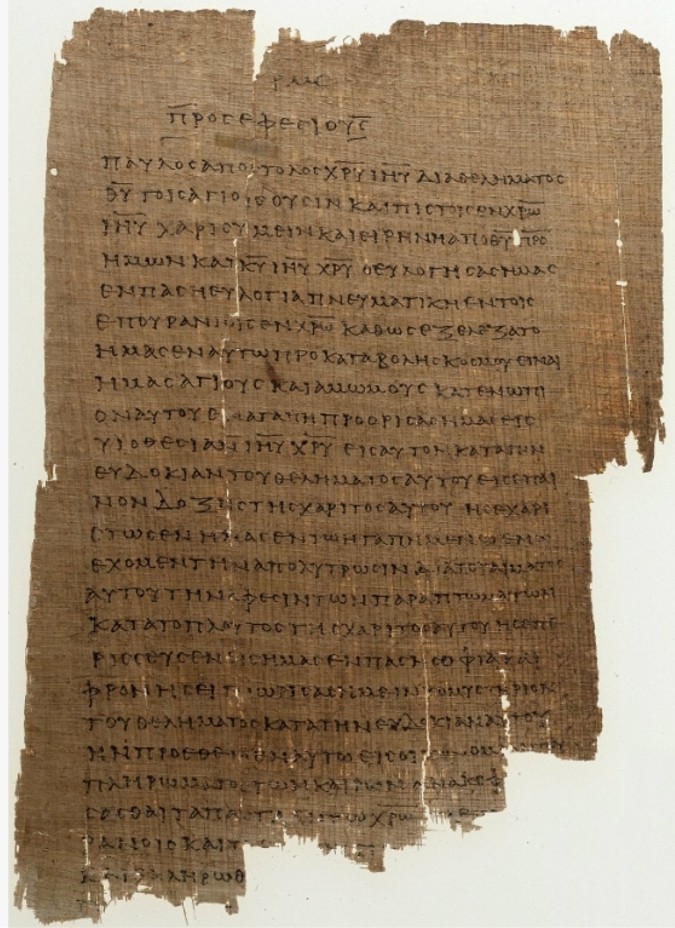 ΡΜϚ
Π̅Ρ̅ΟϹ ΕΦΕϹΙΟΥϹ
ΠΑΥΛΟϹ ΑΠΟϹΤΟΛΟϹ Χ̅Ρ̅Υ̅ Ι̅Η̅Υ̅ ΔΙΑ ΘΕΛΗΜΑΤΟϹ
Θ̅Υ̅ ΤΟΙϹ ΑΓΙΟΙϹ ΟΥϹΙΝ ΚΑΙ ΠΙϹΤΟΙϹ ΕΝ Χ̅Ρ̅Ω̅
Ι̅Η̅Υ̅ ΧΑΡΙϹ ΥΜΕΙΝ ΚΑΙ ΕΙΡΗΝΗ ΑΠΟ Θ̅Υ̅ Π̅Ρ̅Ο̅
ΗΜΩΝ ΚΑΙ Κ̅Υ̅ Ι̅Η̅Υ̅ Χ̅Ρ̅Υ̅ Ο ΕΥΛΟΓΗϹΑϹ ΗΜΑϹ
ΕΝ ΠΑϹΗ ΕΥΛΟΓΙΑ ΠΝΕΥΜΑΤΙΚΗ ΕΝ ΤΟΙϹ
ΕΠΟΥΡΑΝΙΟΙϹ ΕΝ Χ̅Ρ̅Ω̅ ΚΑΘΩϹ ΕΞΕΛΕΞΑΤΟ
ΗΜΑϹ ΕΝ ΑΥΤΩ ΠΡΟ ΚΑΤΑΒΟΛΗϹ ΚΟϹΜΟΥ ΕΙΝΑΙ
ΗΜΑϹ ΑΓΙΟΥϹ ΚΑΙ ΑΜΩΜΟΥϹ ΚΑΤΕΝΩΠΙ
ΟΝ ΑΥΤΟΥ ΕΝ ΑΓΑΠΗ ΠΡΟΟΡΙϹΑϹ ΗΜΑϹ ΕΙϹ
ΥΙΟΘΕϹΙΑΝ Ι̅Η̅Υ̅ Χ̅Ρ̅Υ̅ ΕΙϹ ΑΥΤΟΝ ΚΑΤΑ ΤΗΝ
ΕΥΔΟΚΙΑΝ ΤΟΥ ΘΕΛΗΜΑΤΟϹ ΑΥΤΟΥ ΕΙϹ ΕΠΑΙ
ΝΟΝ ΔΟΞΗϹ ΤΗϹ ΧΑΡΙΤΟϹ ΑΥΤΟΥ ΗϹ ΕΧΑΡΙ
ϹΤΩϹΕΝ ΗΜΑϹ ΕΝ ΤΩ ΗΓΑΠΗΜΕΝΩ ΕΝ Ω
ΕΧΟΜΕΝ ΤΗΝ ΑΠΟΛΥΤΡΩϹΙΝ ΔΙΑ ΤΟΥ ΑΙΜΑΤΟϹ
ΑΥΤΟΥ ΤΗΝ ΑΦΕϹΙΝ ΤΩΝ ΠΑΡΑΠΤΩΜΑΤΩΝ
ΚΑΤΑ ΤΟ ΠΛΟΥΤΟϹ ΤΗϹ ΧΑΡΙΤΟϹ ΑΥΤΟΥ ΗϹ ΕΠΕ
ΡΙϹϹΕΥϹΕΝ ΕΙϹ ΗΜΑϹ ΕΝ ΠΑϹΗ ϹΟΦΙΑ ΚΑΙ
ΦΡΟΝΗϹΕΙ ΓΝΩΡΙϹΑϹ ΗΜΕΙΝ ΤΟ ΜΥϹΤΗΡΙΟΝ
ΤΟΥ ΘΕΛΗΜΑΤΟϹ ΚΑΤΑ ΤΗΝ ΕΥΔΟΚΙΑΝ ΑΥΤΟΥ
ΗΝ ΠΡΟΕΘΕΤΟ ΕΝ ΑΥΤΩ ΕΙϹ ΟΙΚΟΝΟΜΙΑΝ ΤΟΥ
ΠΛΗΡΩΜΑΤΟϹ ΤΩΝ ΚΑΙΡΩΝ ΑΝΑΚΕΦ
ϹΑϹΘΑΙ ΤΑ ΠΑΝΤΑ ΕΝ ΤΩ Χ̅Ρ̅Ω̅
ΡΑΝΟΙϹ ΚΑΙ Τ
ΚΑΙ ΕΚΛΗΡΩΘ